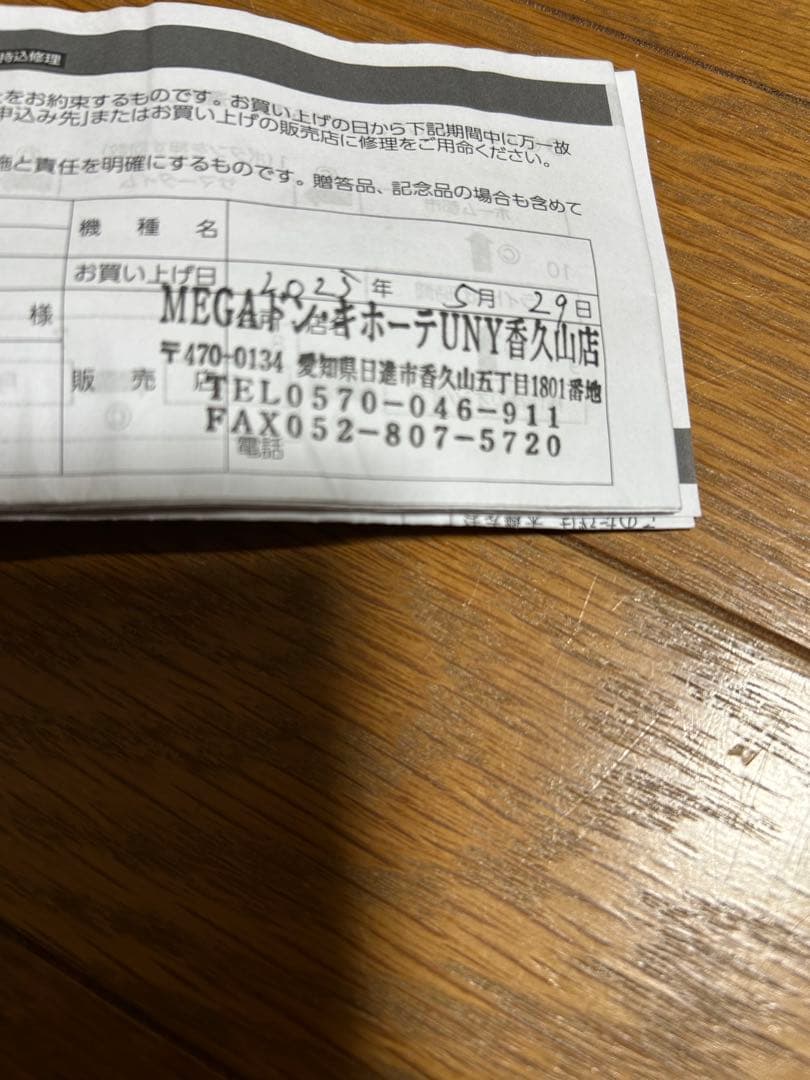 持込修理
をお約束するものです。お買い上げの日から下記期間中に万一故
申込み先」またはお買い上げの販売店に修理をご用命ください。
施と責任を明確にするものです。贈答品、記念品の場合も含めて
機種名
お買い上げ日 2023年 5月 29日
様
販売店
MEGAドン・キホーテUNY香久山店
〒470-0134 愛知県日進市香久山五丁目1801番地
TEL0570-046-911
FAX052-807-5720
電話